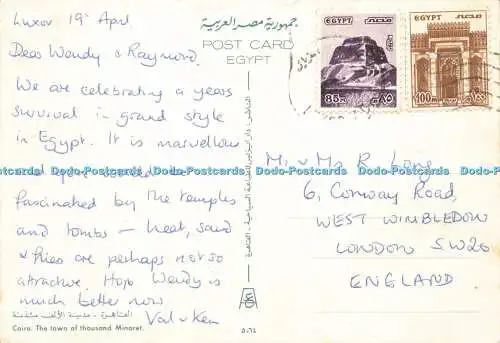 Luxor 19th April
Dear Wendy & Raymond.
We are celebrating a years
survival in grand style
in Egypt. It is marvellous
fascinated by the temples
and tombs – heat, sand
& flies are perhaps not so
attractive. Hope Wendy is
much better now
Val & Ken
القاهرة - مدينة الألف مئذنة
Cairo. The town of thousand Minaret.
جمهورية مصر العربية
POST CARD
EGYPT
EGYPT مصر
85 م ٨٥
EGYPT مصر
100 م ١٠٠
Mr & Mrs R. Long
6, Conway Road,
WEST WIMBLEDON
LONDON SW20
ENGLAND.
Dodo-Postcards Dodo-Postcards Dodo-Postcards Dodo-Postcards Dodo-Postcards